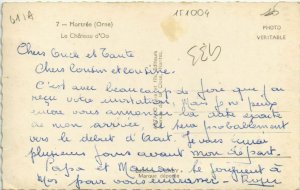 7 - Mortrée (Orne)
Le Château d'Oo
1E1004
PHOTO
VERITABLE
Chers Oncle et Tante
Chers Cousin et cousine.
C'est avec beaucoup de joie que j'ai
reçu votre invitation, mais je ne peux
encore vous annoncer la date exacte
de mon arrivée et peut probablement
vers le début d'Août. Je vous
plusieurs jours avant mon départ.
Papa et Maman se joignent à
moi pour vous embrasser